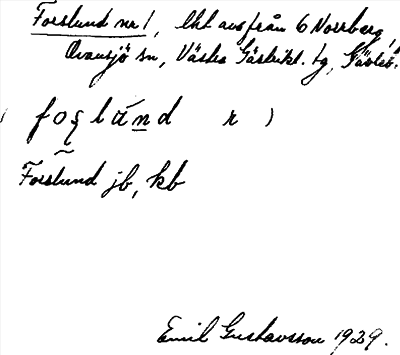 Forslund nr 1, lht avs från 6 Norrberg,
Ovansjö sn, Västra Gästrikl. tg, Gävleb. l.
( foʂlánd r )
Forslund jb, kb
Emil Gustavsson 1929.